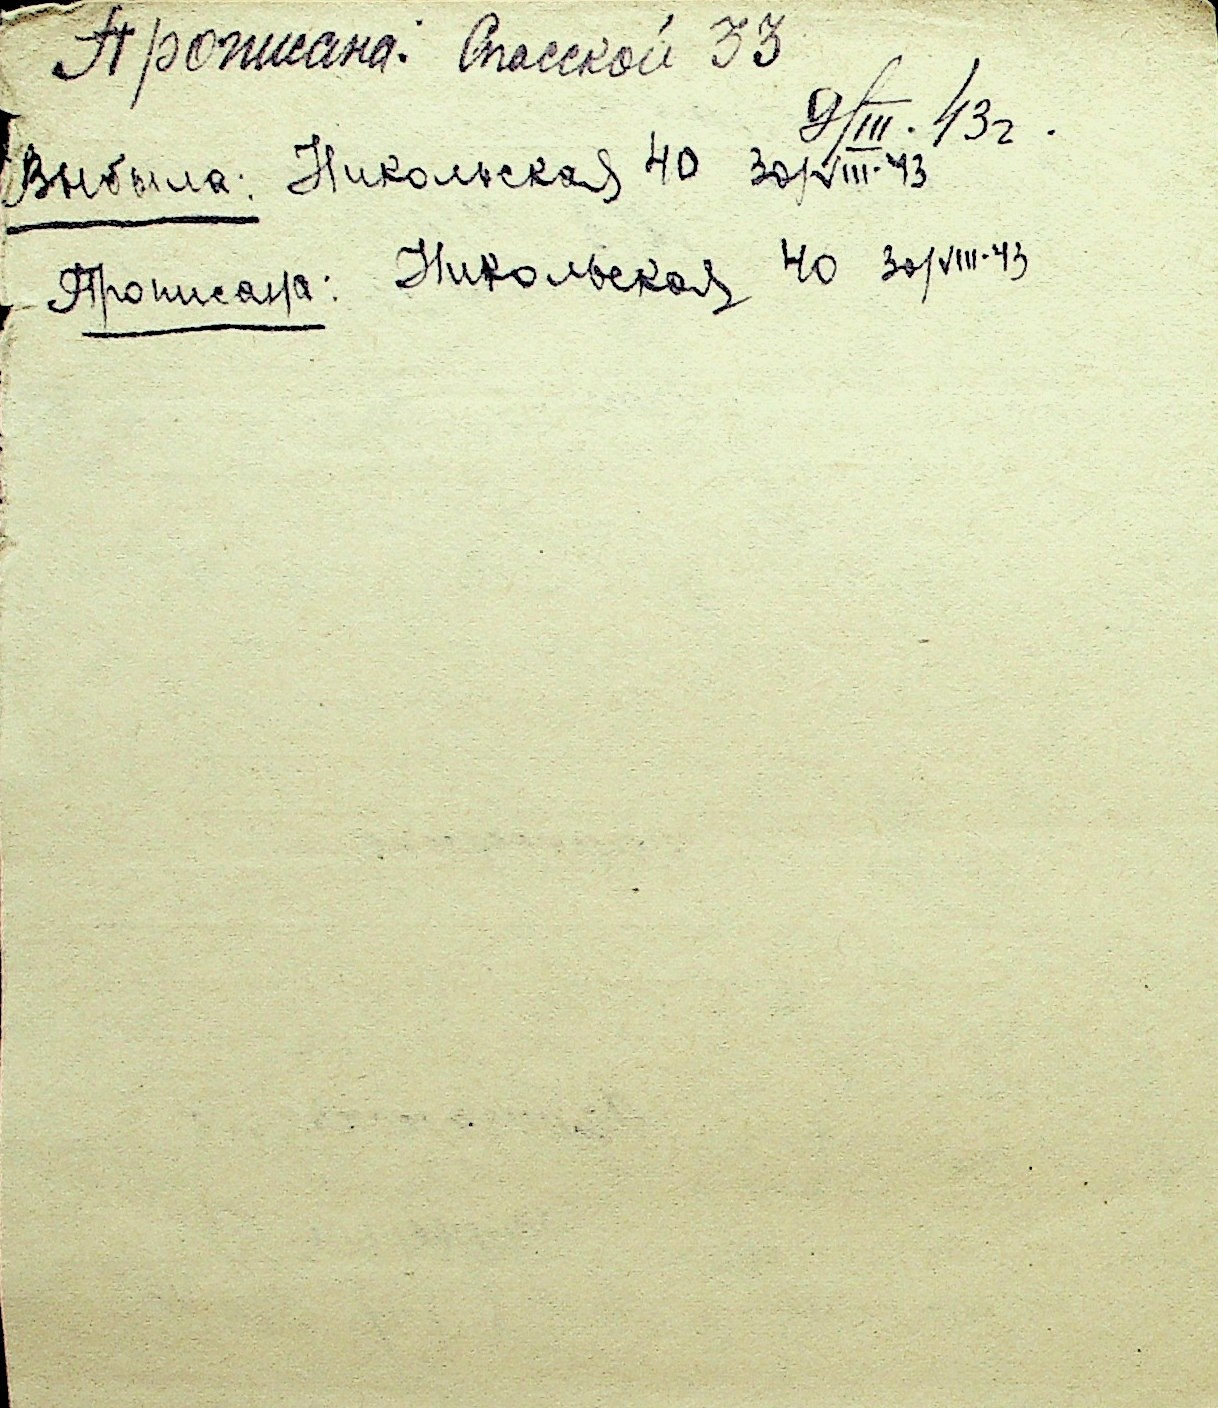 Прописана: Спасской 33
9/III. 43г.
Выбыла: Никольская 40 30/VIII-43
Прописана: Никольская 40 30/VIII-43